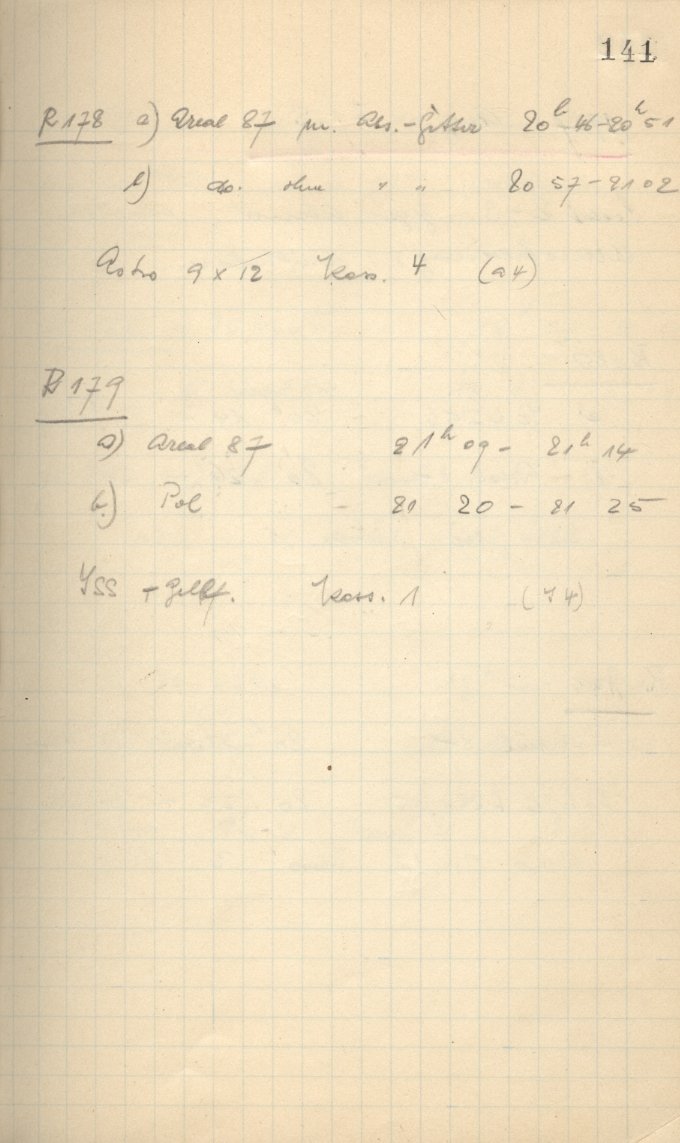 141
R 178 a) Areal 87 m. Abs.-Gitter 20h 46-20h 51
b) do. ohne " " 20 57-21 02
Astro 9 x 12 Kass. 4 (a4)
R 179
a) Areal 87 21h 09 - 21h 14
b.) Pol - 21 20 - 21 25
ISS + Gelbf. Kass. 1 (I 4)